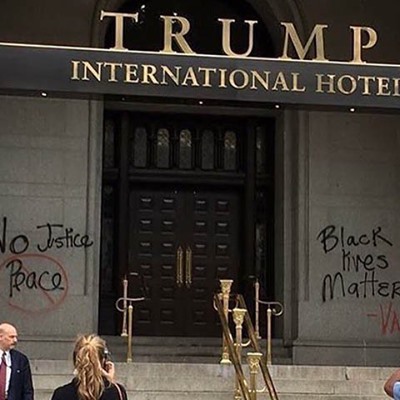 TRUMP
INTERNATIONAL HOTEL
No Justice
Peace
Black
lives
Matter